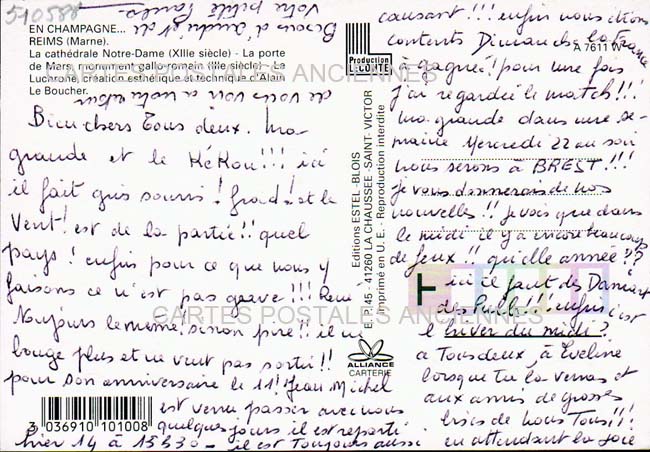 510588
EN CHAMPAGNE...
REIMS (Marne).
La cathédrale Notre-Dame (XIIIe siècle) - La porte
de Mars, monument gallo-romain (IIIe siècle) - Le
Luchrone, création esthétique et technique d'Alain
Le Boucher.
Bien chers Tous deux. Ma
grande et le KéKou!!! ici
il fait gris souris! froid! et le
Vent! est de la partie!! quel
pays! enfin pour ce que nous y
faisons ce n'est pas grave!!! René
Toujours le même! sinon pire!! il ne
bouge plus et ne veut pas sortir!!
pour son anniversaire le 11! Jean Michel
est venu passer avec nous
quelques jours il est reparti
hier 14 à 15h30 - il est Toujours aussi
causant!!! enfin nous étions
contents Dimanche la France
à gagné! pour une fois
j'ai regardée le match!!!
ma grande dans une se-
maine Mercredi 22 au soir
nous serons à BREST!!!
je vous donnerais de nos
nouvelles!! je vois que dans
le midi il y a encore beaucoup
de feux!! qu'elle année??
ici il faut des Damart
des Pulls!!! enfin c'est
l'hiver du midi?
a Tous deux, à Eveline
lorsque tu la verras et
aux amis de grosses
bises de nous Tous!!!
en attendant la joie
de vous voir a notre retour
Votre petite
Production
LECONTE
A 7611 W
Editions ESTEL - BLOIS
E. P. 45 - 41260 LA CHAUSSEE-SAINT-VICTOR
Imprimé en U.E. - Reproduction interdite
ALLIANCE
CARTERIE
3 036910 101008
CARTES POSTALES ANCIENNES
CARTES POSTALES ANCIENNES